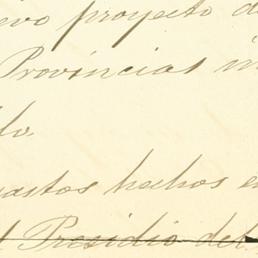 evo proyecto de
Provincias in
do.
gastos hechos en
l Presidio del